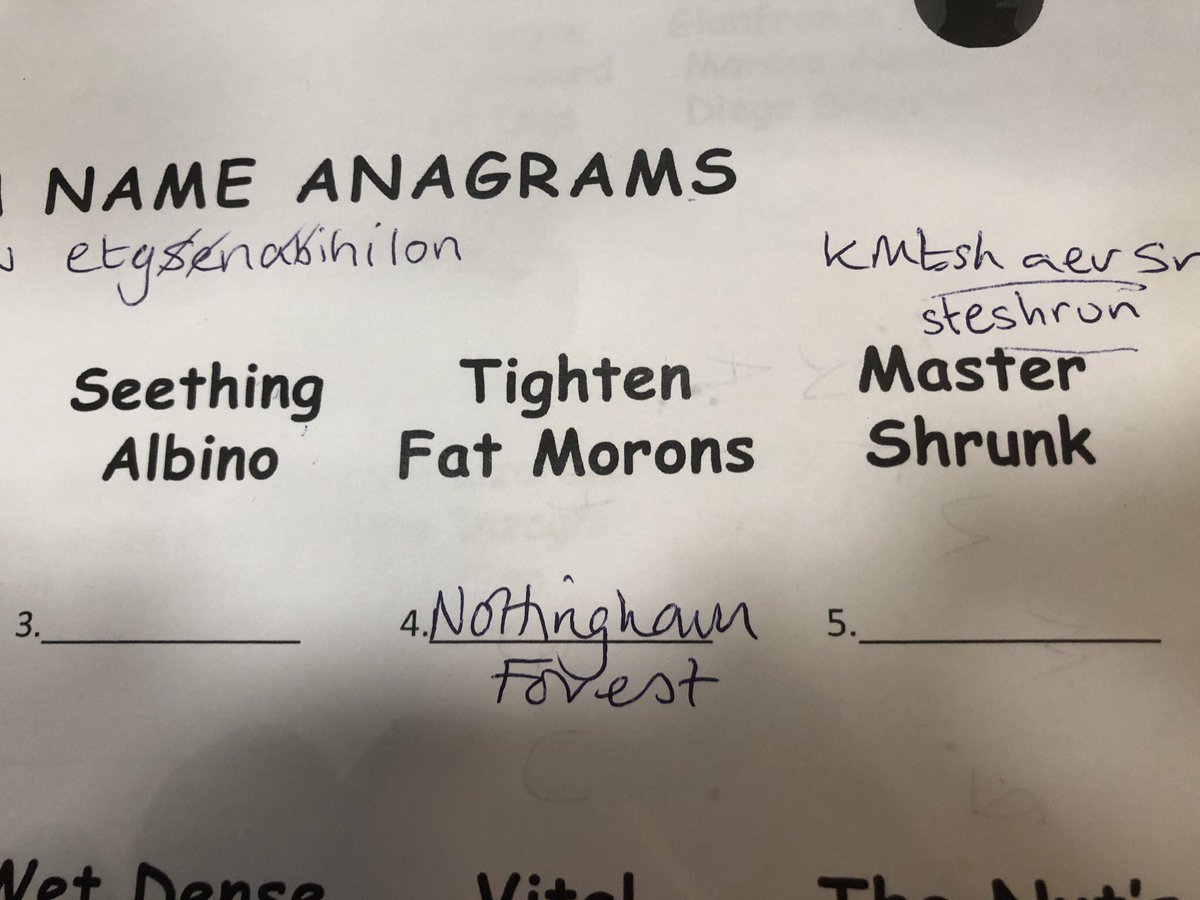 NAME ANAGRAMS
etgsenabihilon
KMtsh aer Sr
steshrun
Seething
Albino
Tighten
Fat Morons
Master
Shrunk
3.
4. Nottingham
Forest
5.
Wet Dense
Vital
The Nut's